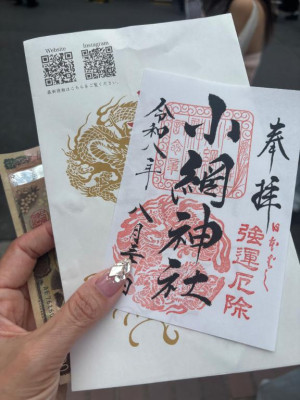 Website
Instagram
最新情報はこちらをご覧ください。
奉拝
強運厄除
小網神社
令和八年
八月